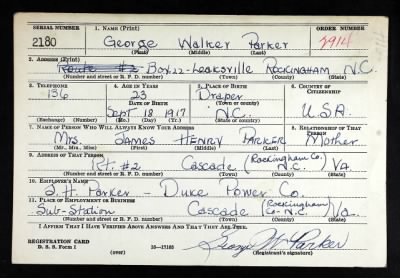 SERIAL NUMBER 1. NAME (Print) ORDER NUMBER
2180 George Walker Parker 2914
(First) (Middle) (Last)
2. ADDRESS (Print)
Route #2 - Box 22 - Leaksville Rockingham N.C.
(Number and street or R. F. D. number) (Town) (County) (State)
3. TELEPHONE 4. AGE IN YEARS 5. PLACE OF BIRTH 6. COUNTRY OF CITIZENSHIP
136 23 Draper
DATE OF BIRTH (Town or county)
Sept 18 1917 N.C. U.S.A.
(Mo.) (Day) (Yr.) (State or country)
7. NAME OF PERSON WHO WILL ALWAYS KNOW YOUR ADDRESS 8. RELATIONSHIP OF THAT PERSON
Mrs. James Henry Parker Mother
(Mr., Mrs., Miss) (First) (Middle) (Last)
9. ADDRESS OF THAT PERSON
Rt. #2 Cascade (Rockingham Co. N.C.) Va
(Number and street or R. F. D. number) (Town) (County) (State)
10. EMPLOYER'S NAME
J.H. Parker Duke Power Co.
11. PLACE OF EMPLOYMENT OR BUSINESS
Sub-Station Cascade (Rockingham Co - N.C.) Va.
(Number and street or R. F. D. number) (Town) (County) (State)
I AFFIRM THAT I HAVE VERIFIED ABOVE ANSWERS AND THAT THEY ARE TRUE.
REGISTRATION CARD George W Parker
D. S. S. Form 1 (over) 16-17105 (Registrant's signature)